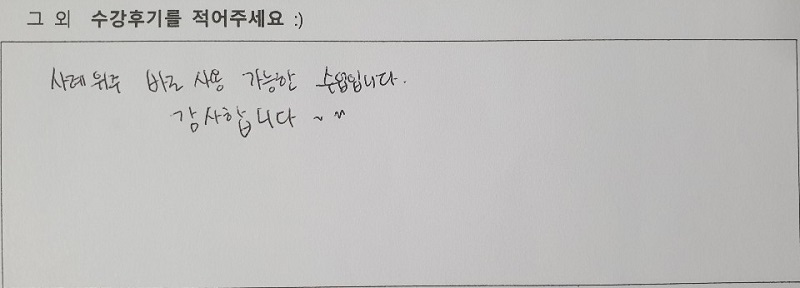 그 외 수강후기를 적어주세요 :)
사례위주 바로 사용 가능한 수업입니다.
감사합니다 ~ ~